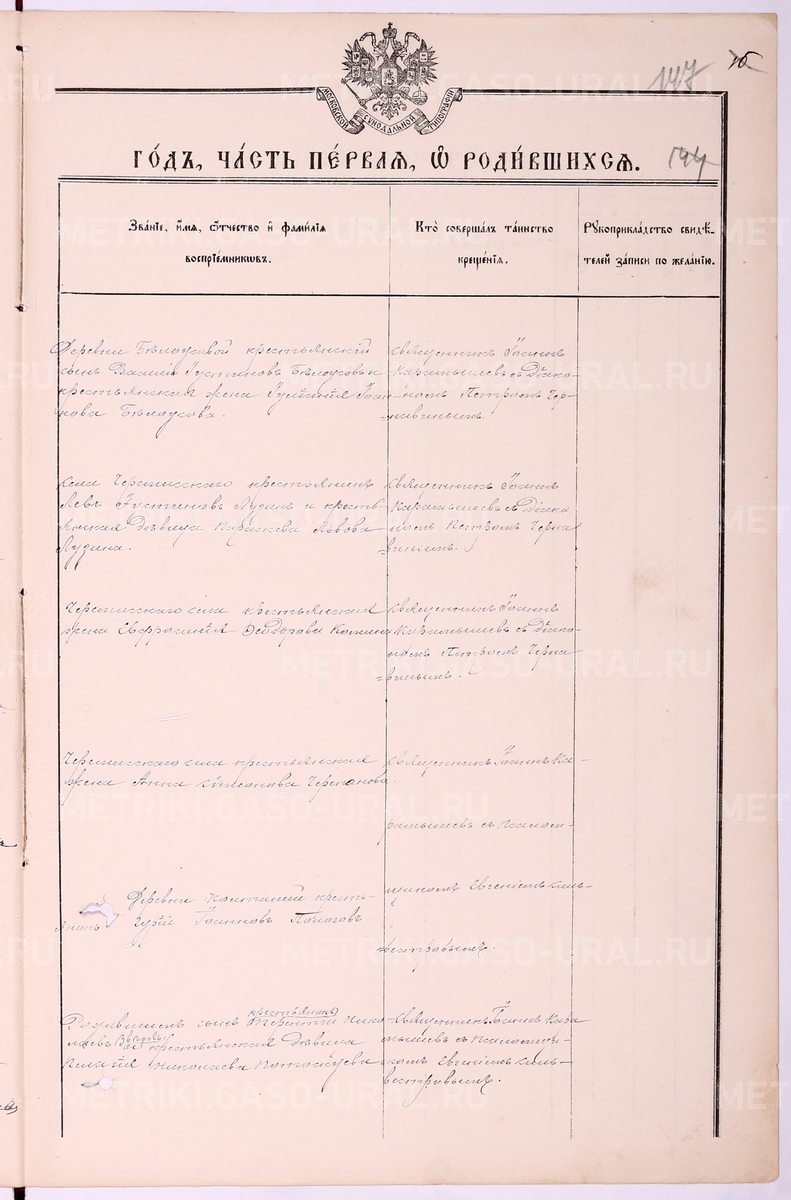 147
194
МОСКОВСКОЙ СѴНОДАЛЬНОЙ ТИПОГРАФІИ
ГО́ДЪ, ЧА́СТЬ ПЕ́РВАЯ, Ѽ РОДИ́ВШИХСЯ.
Зва́ніе, и́мя, ѻ́тчество и фами́лія
воспріе́мниковъ.
Кто̀ соверша́лъ та́инство
креще́нія.
Рꙋкоприкла́дство свидѣ́-
телей за́писи по жела́нію.
Деревни Бѣлоусовой крестьянскій
сынъ Іустиновъ Бѣлоусовъ и
крестьянская жена Іоан-
нова Бѣлоусова.
Священникъ Іоаннъ
Карамышевъ съ Діако-
номъ Петромъ Чер-
навинымъ.
села Черемисскаго крестьянинъ
Левъ Іустиновъ Лузинъ и кресть-
янская дѣвица Львова
Лузина.
Священникъ Іоаннъ
Карамышевъ съ Діако-
номъ Петромъ Черна-
винымъ.
Черемисскаго села крестьянская
жена Евфросинія Ѳеодорова
Священникъ Іоаннъ
Карамышевъ съ Діако-
номъ Петромъ Черна-
винымъ.
Черемисскаго села крестьянская
жена Анна Сѵмеонова Черепанова.
Священникъ Іоаннъ Ка-
рамышевъ съ псалом-
щикомъ Евгеніемъ Силь-
вестровымъ.
Деревни кресть-
янинъ Гурій Іоанновъ
крестьянинъ
сынъ Терентій Нико-
лаевъ и крестьянская дѣвица
Николаева
Священникъ Іоаннъ Кара-
мышевъ съ псаломщи-
комъ Евгеніемъ Силь-
вестровымъ.
METRIKI.GASO-URAL.RU